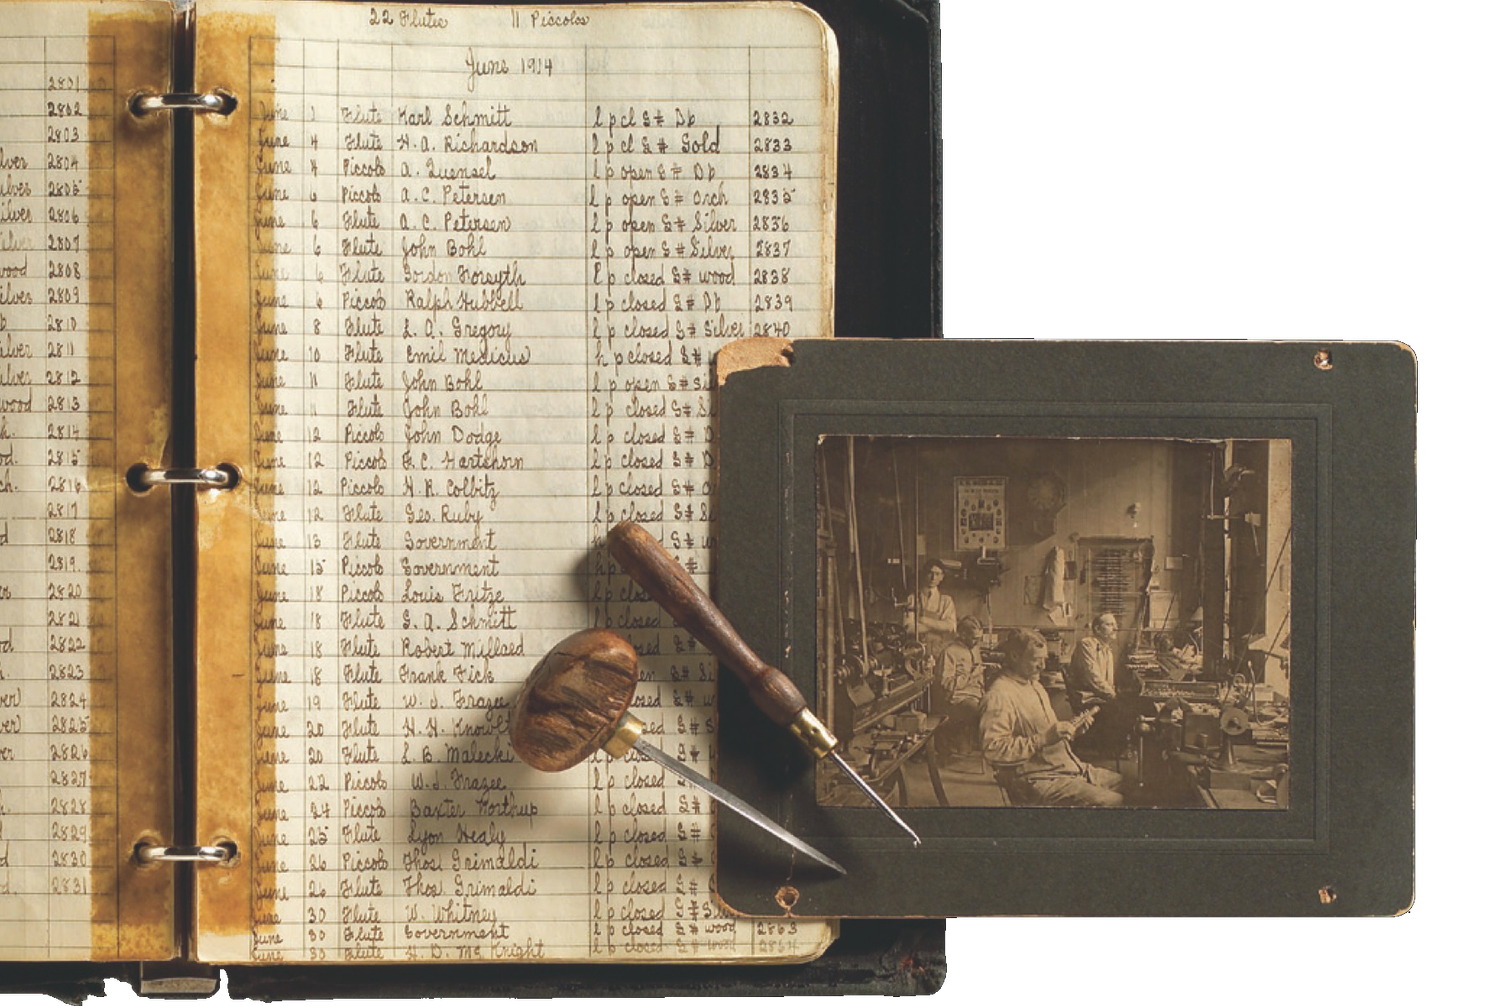 22 Flutes 11 Piccolos
June 1914
2801
2802
2803
lver 2804
ilver 2805
ilver 2806
ilver 2807
ood 2808
ilver 2809
b 2810
ilver 2811
ilver 2812
wood 2813
h. 2814
od. 2815
ch. 2816
2817
d 2818
2819.
er 2820
2821
d 2822
h 2823
ver 2824
ver 2825
er 2826
2827
h. 2828
2829
d 2830
d. 2831
June 1 Flute Karl Schmitt l p cl G# Db 2832
June 4 Flute H. A. Richardson l p cl G# Gold 2833
June 4 Piccolo A. Quensel l p open G# Db 2834
June 6 Piccolo A. C. Petersen l p open G# Orch 2835
June 6 Flute A. C. Petersen l p open G# Silver 2836
June 6 Flute John Bohl l p open G# Silver 2837
June 6 Flute Gordon Forsyth l p closed G# wood 2838
June 6 Piccolo Ralph Hubbell l p closed G# Db 2839
June 8 Flute L. A. Gregory l p closed G# Silver 2840
June 10 Flute Emil Medicus h p closed G#
June 11 Flute John Bohl l p open G# Si
June 11 Flute John Bohl l p closed G# S
June 12 Piccolo John Dodge l p closed G# D
June 12 Piccolo F. C. Hartshorn l p closed G# D
June 12 Piccolo H. R. Colbitz l p closed G#
June 12 Flute Geo. Ruby l p closed G#
June 13 Flute Government h p closed G#
June 15 Piccolo Government h p
June 18 Piccolo Louis Fritze l p
June 18 Flute G. A. Schmitt
June 18 Flute Robert Millard closed G#
June 18 Flute Frank Fick en G# Si
June 19 Flute W. J. Frazee losed G#
June 20 Flute H. H. Knowl losed G# S
June 20 Flute L. B. Malecki closed G#
June 22 Piccolo W. J. Frazee l p closed
June 24 Piccolo Baxter Northup l p closed G#
June 25 Flute Lyon Healy l p closed G#
June 26 Piccolo Thos. Grimaldi l p closed G#
June 26 Flute Thos. Grimaldi l p closed G#
June 30 Flute W. Whitney l p closed G# Sil
June 30 Flute Government l p closed G# wood 2863
June 30 Flute H. D. McKnight l p closed G# wood 2864